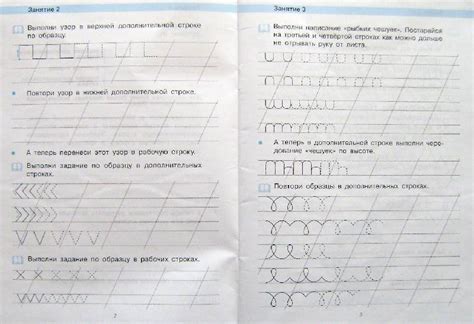 Занятие 2
Выполни узор в верхней дополнительной строке
по образцу.
Повтори узор в нижней дополнительной строке.
А теперь перенеси этот узор в рабочую строку.
Выполни задание по образцу в дополнительных
строках.
Выполни задание по образцу в рабочих строках.
2
Занятие 3
Выполни написание «рыбких чешуек». Постарайся
на третьей и четвёртой строках как можно дольше
не отрывать руку от листа.
А теперь в дополнительной строке выполни чере-
дование «чешуек» по высоте.
Повтори образцы в дополнительных строках.
3